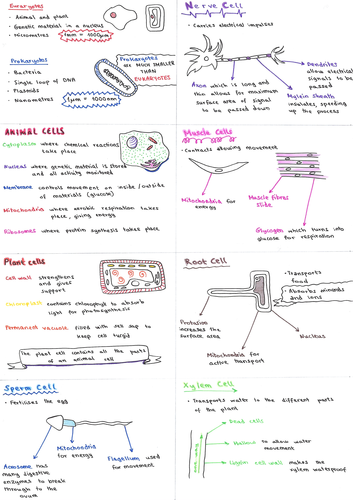 Eukaryotes
• Animal and plant
• Genetic material in a nucleus
• Micrometres
1mm = 1000µm
Prokaryotes
• Bacteria
• Single loop of DNA
• Plasmids
• Nanometres
1µm = 1000nm
Prokaryotes
are MUCH SMALLER
THAN
EUKARYOTES
Nerve Cell
• Carries electrical impulses
Axon which is long and
thin allows for maximum
surface area of signal
to be passed down
Dendrites
allow electrical
signals to be
passed
Myelin Sheath
insulates, speeding
up the process
ANIMAL CELLS
Cytoplasm where chemical reactions
take place
Nucleus where genetic material is stored
and all activity monitored
Membrane controls movement on inside/outside
of materials (glucose)
Mitochondria where aerobic respiration takes
place, giving energy
Ribosomes where protein synthesis takes place
Muscle Cells
• Contracts allowing movement
Mitochondria for
energy
Muscle fibres
slide
Glycogen which turns into
glucose for respiration
Plant cells
Cell wall strengthens
and gives
support
Chloroplast contains chlorophyll to absorb
light for photosynthesis
Permanent vacuole filled with cell sap to
keep cell turgid
The plant cell contains all the parts
of an animal cell
Root Cell
• Transports
food
• Absorbs minerals
and ions
Protusion
increases the
surface area
Mitochondria for
active transport
Nucleus
Sperm Cell
• Fertilises the egg
Mitochondria
for energy
Acrosome has
many digestive
enzymes to break
through to the
ovum
Flagellum used
for movement
Xylem Cell
• Transports water to the different parts
of the plant
Dead cells
Hollow to allow water
movement
Lignin cell wall makes the
xylem waterproof